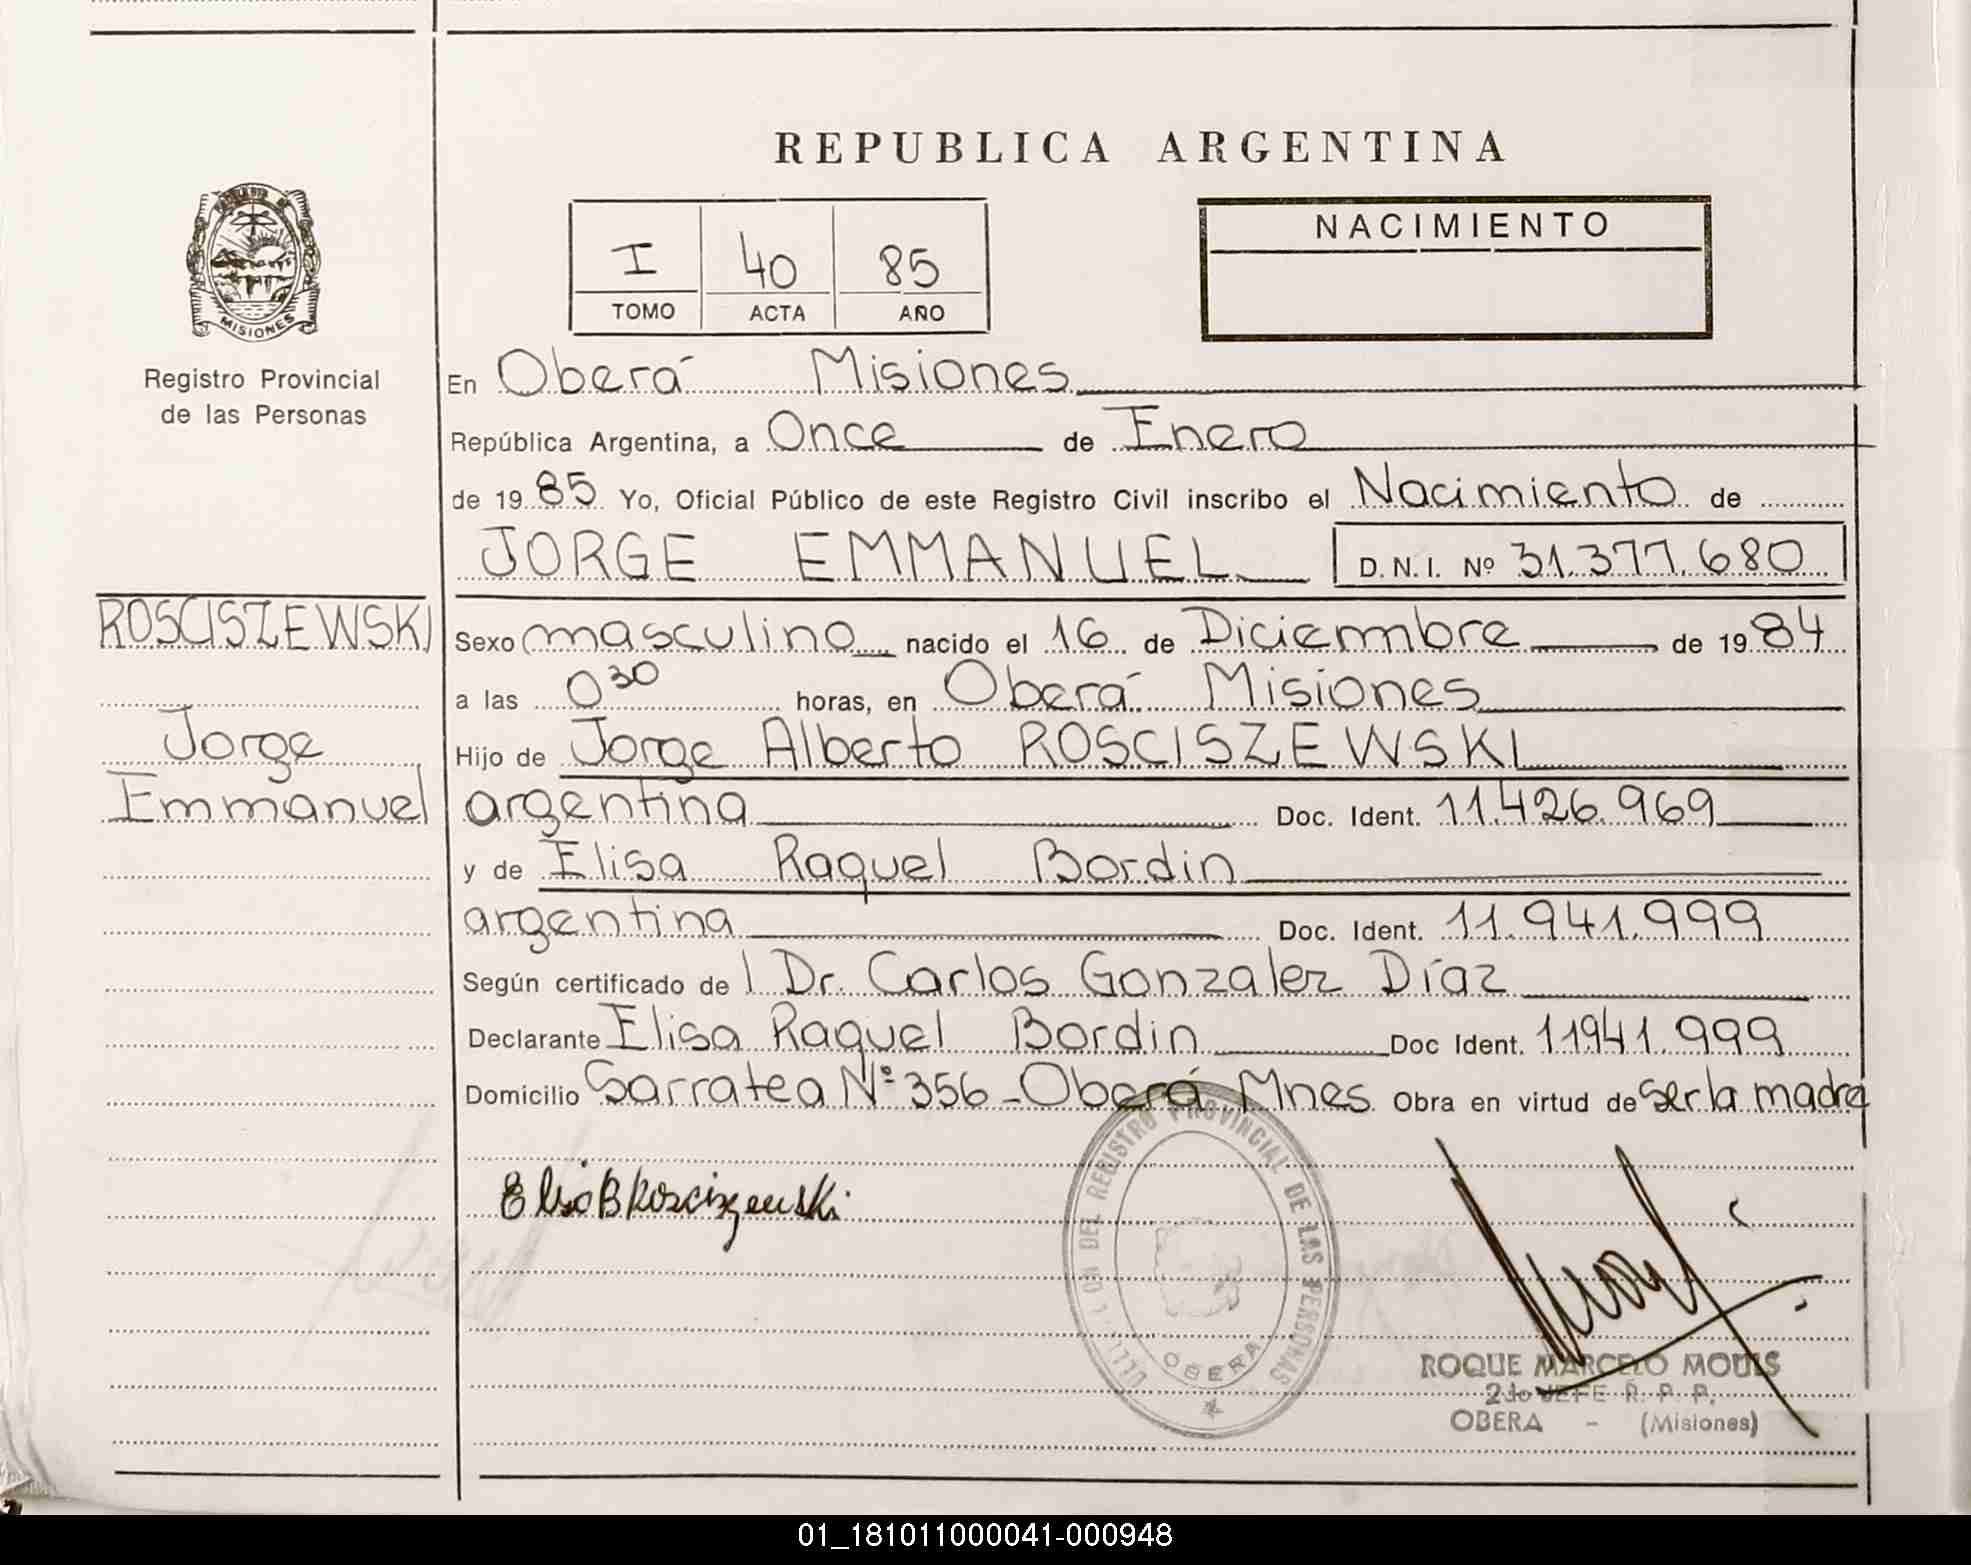 REPUBLICA ARGENTINA
MISIONES
Registro Provincial
de las Personas
ROSCISZEWSKI
Jorge
Emmanuel
I 40 85
TOMO ACTA AÑO
NACIMIENTO
En Oberá Misiones
República Argentina, a Once de Enero
de 1985 Yo, Oficial Público de este Registro Civil inscribo el Nacimiento de
JORGE EMMANUEL D.N.I. Nº 31.377.680
Sexo masculino nacido el 16 de Diciembre de 1984
a las 0 30 horas, en Oberá Misiones
Hijo de Jorge Alberto ROSCISZEWSKI
argentina Doc. Ident. 11.426.969
y de Elisa Raquel Bordin
argentina Doc. Ident. 11.941.999
Según certificado de l Dr. Carlos Gonzalez Díaz
Declarante Elisa Raquel Bordin Doc Ident. 11941.999
Domicilio Sarratea Nº 356 - Oberá Mnes Obra en virtud de ser la madre
Elisa B Rosciszewski
DEL REGISTRO PROVINCIAL DE LAS PERSONAS
OBERA
ROQUE MARCELO MOULS
2do JEFE R. P. P.
OBERA - (Misiones)
01_181011000041-000948